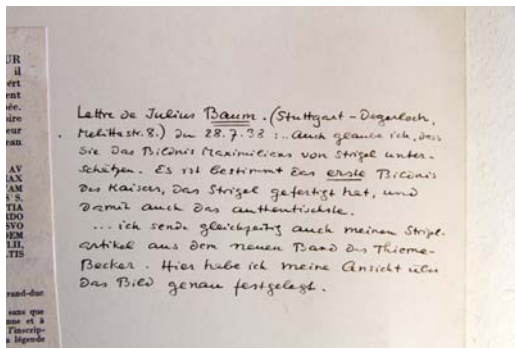 UR
il
ert
ent
ée.
oire
eur
ean
AV
AX
AM
S S.
TIA
RDO
SVO
DEM
LII,
ATIS
rand-duc
sans que
nne et à
l'inscrip-
a légende
Lettre de Julius Baum. (Stuttgart - Degerloch,
Melittastr. 8.) du 28.7.38 : .. auch glaube ich, dass
Sie das Bildnis Maximilians von Strigel unter-
schätzen. Es ist bestimmt das erste Bildnis
des Kaisers, das Strigel gefertigt hat, und
damit auch das authentischste.
... ich sende gleichzeitig auch meinen Strigel-
artikel aus dem neuen Band des Thieme-
Becker. Hier habe ich meine Ansicht über
das Bild genau festgelegt.